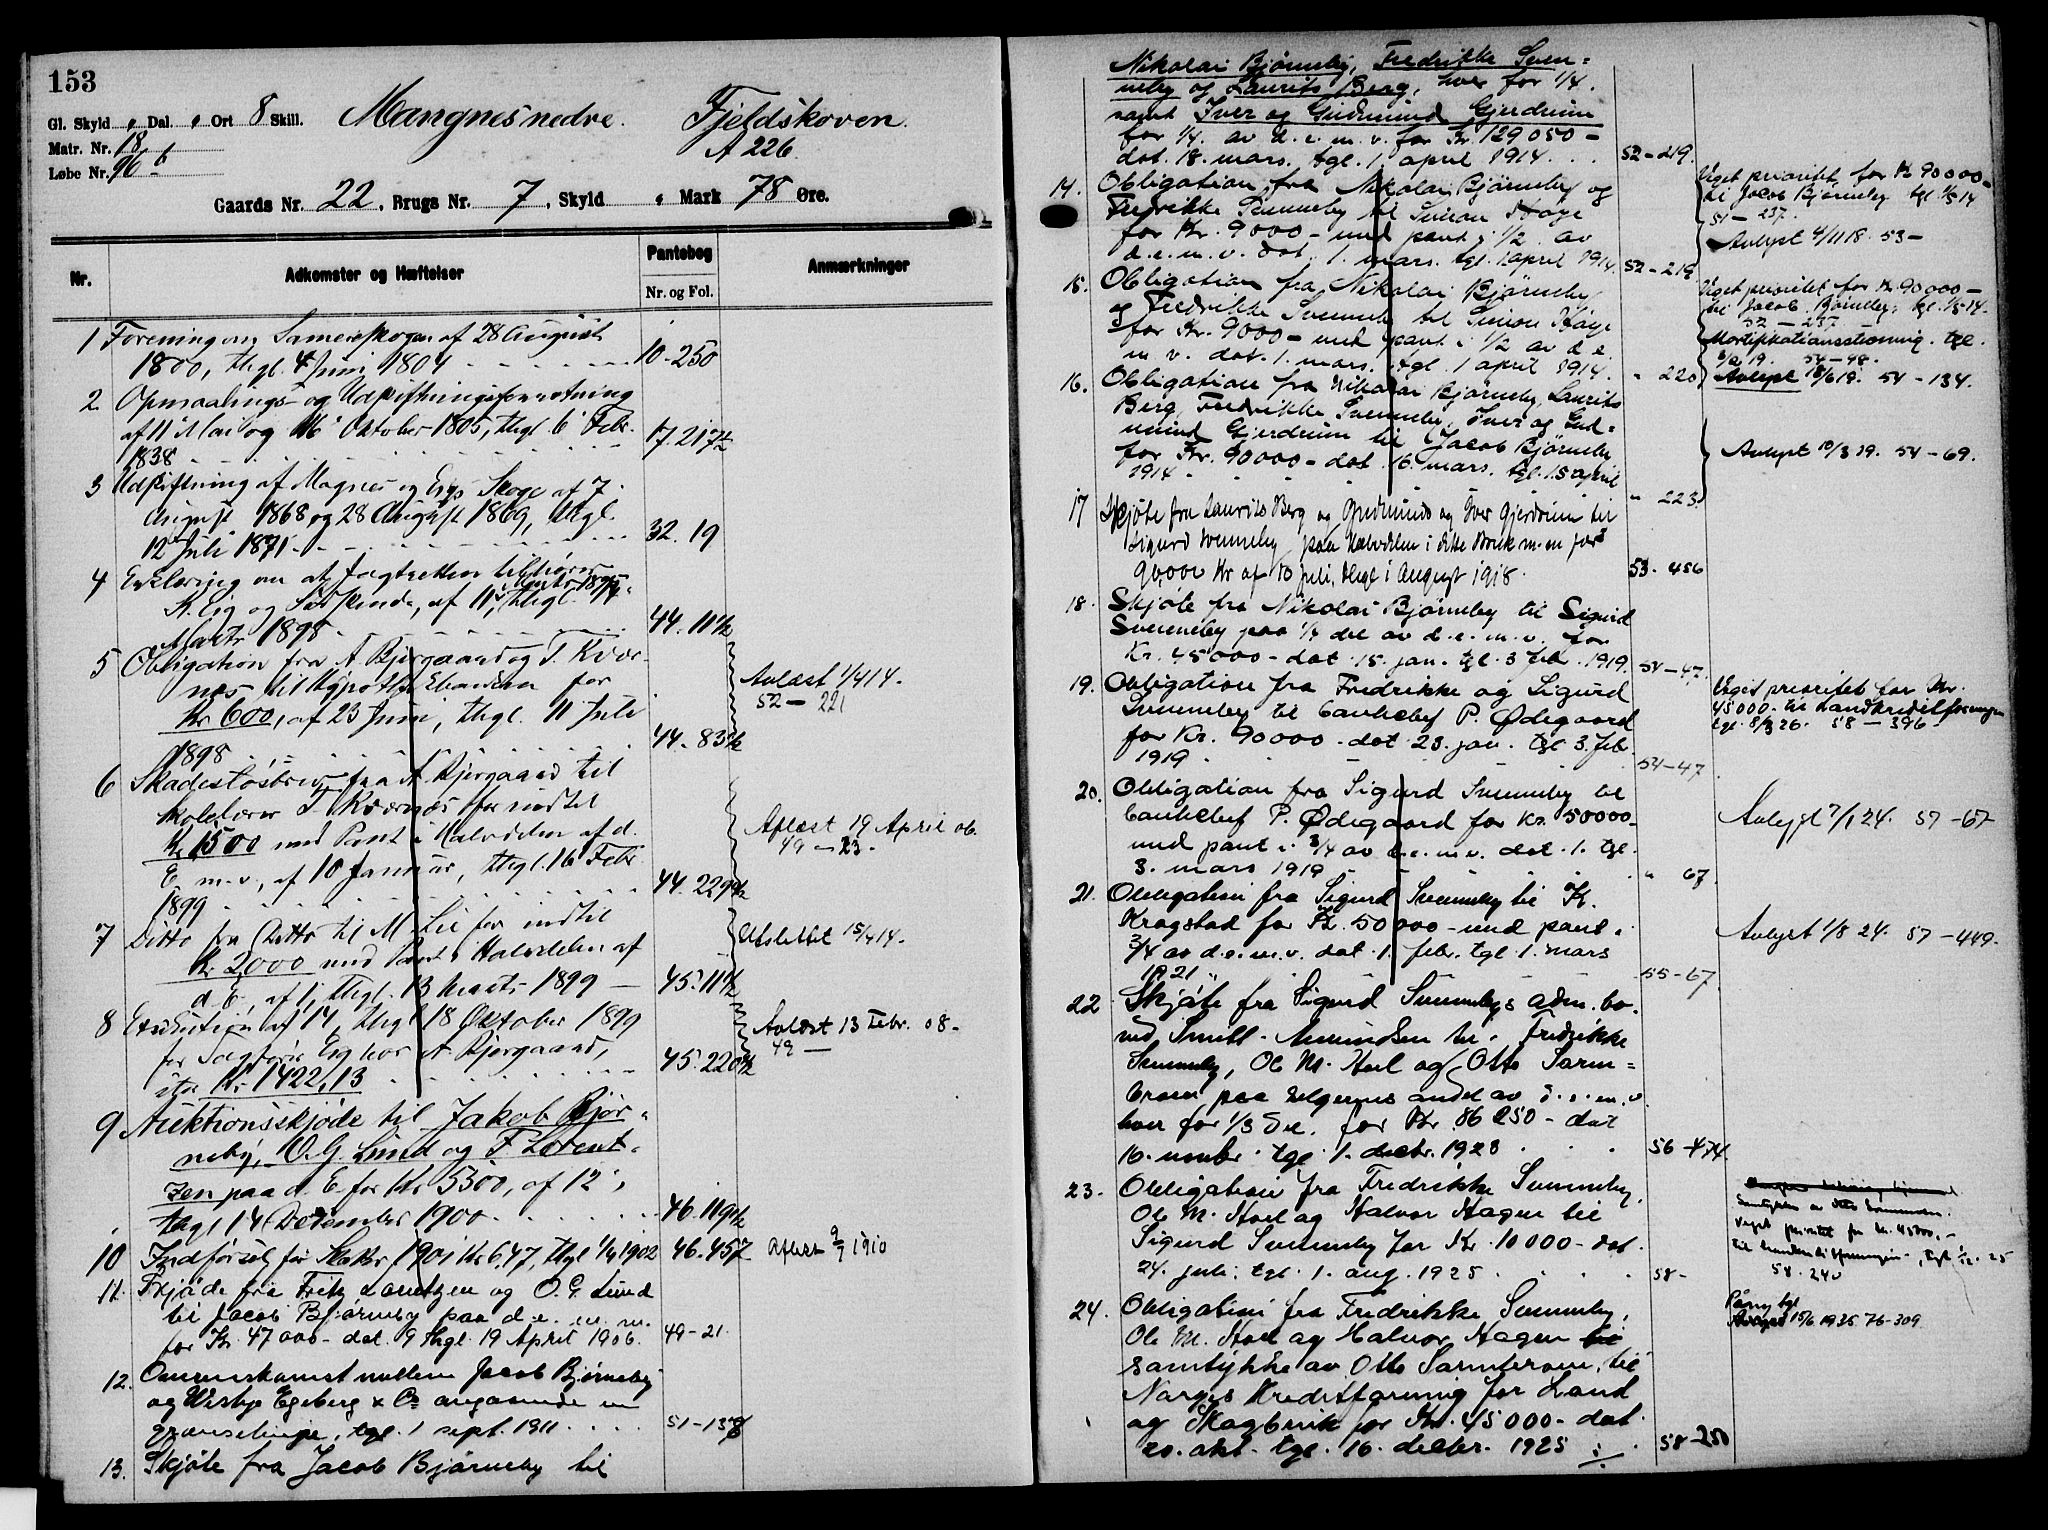 153
Gl. Skyld „ Dal. „ Ort 8 Skill. Mangnes nedre. Fjeldskoven.
Matr. Nr. 18 A 226.
Løbe Nr. 96 b
Gaards Nr. 22, Brugs Nr. 7, Skyld „ Mark 78 Øre.
Nr. Adkomster og Hæftelser Pantebog Anmærkninger
Nr. og Fol.
1 Forening om Sameieskogen af 28 August
1800, thgl. 4 Juni 1804 10-250
2 Opmaalings- og Udskiftningsforretning
af 11 Mai og 16 Oktober 1805, thgl. 6 Febr.
1838 17.217½
3 Udskiftning af Magnes og Eigs Skoge af 7
August 1868 og 28 August 1869, thgl.
12 Juli 1871 32.19
4 Erklæring om at Jagtretten tilhører
K. Eig og af 11, thgl.
Marts 1898 44.11½
5 Obligation fra A. Bjergaard og T. Kvær-
nes til Hypothekbanken for
Kr 600, af 23 Juni, thgl. 11 Juli
1898 44.83½
Avlæst 1/4 14.
52 — 221
6 Skadesløsbrev fra A. Bjergaard til
Skolelærer T. Kværnæs for indtil
Kr 1500 med Pant i Halvdelen af d.
E. m.v., af 10 Januar, thgl. 16 Febr
1899 44.229½
Aflæst 19 April 06.
49 — 23.
7 Ditto fra Ditto til M. Lie for indtil
Kr 2,000 med Pant i Halvdelen af
d. E, af 1, thgl. 13 Marts 1899 — 45.11½
Afslettet 15/4 14.
8 Exekution af 14, thgl 18 Oktober 1899
for Eig hos A. Bjergaard,
stor Kr. 1422,13 45.220½
Avlæst 13 Febr. 08.
49 —
9 Auktionsskjøde til Jakob Bjør-
neby, O.G. Lund og F Lorent-
zen paa d. E. for Kr 5300, af 12,
thgl 14 December 1900 46.119½
10 Indførsel for Skatter 1901 Kr 6,47, thgl 1/4 1902 46.457
Aflæst 9/7 1910
11. Skjøde fra Fritz Lorentzen og O.G. Lund
til Jacob Bjørneby paa d.e. m.m.
for Kr. 47 000 - dat. 9 thgl. 19 April 1906. 49-21.
12. Overenskomst mellem Jacob Bjørneby
og Westye Egeberg & Co angaaende en
grænselinje, tgl. 1 sept. 1911 51-138
13. Skjøte fra Jacob Bjørneby til
Nikolai Bjørneby, Fredrikke Svenne-
by og Laurits Berg, hver for 1/4.
samt Iver og Gudmund Gjerdrum
for 1/4. av d. e. m. v. for Kr. 129 050 -
dat. 18. mars. tgl. 1. april 1914 52-219.
14. Obligation fra Nikolai Bjørneby og
Fredrikke Svenneby til Simon Støge
for Kr. 9000 - med pant i 1/2 av
d.e.m.v. dat. 1. mars. tgl. 1 april 1914. 52-219
Veget prioritet for Kr 90000-
til Jacob Bjørneby tgl. 1/5 14
51 — 237.
Avlyst 4/11 18. 53 —
15. Obligation fra Nikolai Bjørneby
og Fredrikke Svenneby til Simon Støge
for Kr. 9000 - med pant i 1/2 av d e.
m. v. dat. 1. mars. tgl. 1 april 1914. " 220
Veget prioritet for Kr 90000 -
til Jacob Bjørneby, tgl. 1/5 14.
52 — 237
Mortifikationsstevning. tgl.
54-48.
Avlyst 18/6 19. 54 - 134.
16. Obligation fra Nikolai Bjørneby, Laurits
Berg, Fredrikke Svenneby, Iver og Gud-
mund Gjerdrum til Jacob Bjørneby
for Kr. 90000 - dat. 16. mars. tgl. 15 april
1914 " 223
Avlyst 10/3 19. 54 - 69.
17 Skjøte fra Laurits Berg og Gudmund og Iver Gjerdrum til
Sigurd Svenneby paa Halvdelen i dette Bruk m. en for
90,000 Kr af 10 juli, thgl 1 August 1918. 53-456
18. Skjøte fra Nikolai Bjørneby til Sigurd
Svenneby paa 1/4 del av d. e. m. v. for
Kr. 45000 - dat. 15. jan. tgl. 3 febr. 1919. 54-47.
19. Obligation fra Fredrikke og Sigurd
Svenneby til bankchef P. Ødegaard
for Kr. 90000 - dat. 23. jan. tgl. 3. febr
1919 54-47
Veget prioritet for Kr.
45000.- til Landkreditforeningen
tgl. 8/3 26. 58 — 396.
20. Obligation fra Sigurd Svenneby til
bankchef P. Ødegaard for Kr. 50000-
med pant i 3/4 av d.e.m.v. dat. 1. tgl.
3. mars 1919 " 67.
Avlyst 7/1 24. 57 - 67
21. Obligation fra Sigurd Svenneby til K.
Kragstad for Kr. 50 000 - med pant i
3/4 av d.e.m.v. dat. 1. febr. tgl. 1. mars
1921 55-67
Avlyst 1/8 24. 57 - 449.
22 Skjøte fra Sigurd Svennebys adm. bo.
ved Smitt - Amundsen til Fredrikke
Svenneby, Ole M. Stoel og Otto Sarm-
brom paa selgerens andel av d.e.m.v.
hver for 1/3 del. for Kr. 86 250 - dat
16. novbr. tgl. 1. decbr. 1923 56-474
23. Obligation fra Fredrikke Svenneby,
Ole M. Stoel og Halvor Hagen til
Sigurd Svenneby for Kr. 10 000 - dat.
24. juli. tgl. 1. aug. 1925 58-
Samtykke av Otto
Veget prioritet for kr. 45000.-
58. 240
24. Obligation fra Fredrikke Svenneby,
Ole M. Stoel og Halvor Hagen
samtykke av Otto Sarmbrom, til
Norges Kreditforening for Land
og Skogbruk for Kr. 45 000 - dat.
20. okt. tgl. 16. decbr. 1925 58-250
Påny tgl
15/6 1935 76-309